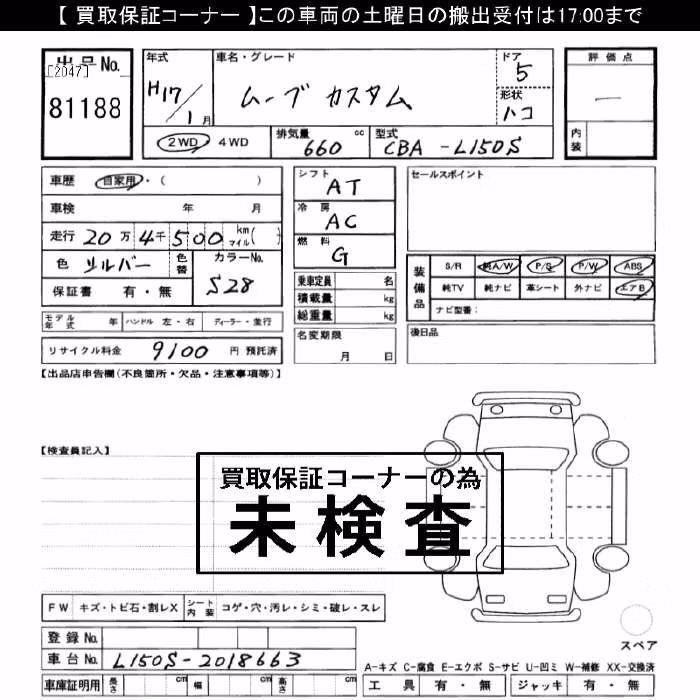 【 買取保証コーナー 】この車両の土曜日の搬出受付は17:00まで
出品No.
[2047]
81188
年式
H17/1月
車名・グレード
ムーブ カスタム
ドア
5
形状
ハコ
評価点
―
内装
2WD・4WD
排気量
660 cc
型式
CBA-L150S
車歴 自家用・( )
車検 年 月
走行 20万4千500 km マイル( )
色 シルバー
色替
カラーNo.
S28
保証書 有・無
モデル年式 年
ハンドル 左・右
ディーラー・並行
リサイクル料金 9100 円 預託済
シフト
AT
冷房
AC
燃料
G
乗車定員 名
積載量 kg
総重量 kg
名変期限
月 日
セールスポイント
装備品
S/R 純A/W P/S P/W ABS
純TV 純ナビ 革シート 外ナビ エアB
ナビ型番:
後日品
【出品店申告欄(不良箇所・欠品・注意事項等)】
【検査員記入】
買取保証コーナーの為
未検査
FW キズ・トビ石・割レX
シート内装 コゲ・穴・汚レ・シミ・破レ・スレ
登録No.
車台No. L150S-2018663
車庫証明用 長さ cm 幅 cm 高さ cm
スペア
A-キズ C-腐食 E-エクボ S-サビ U-凹ミ W-補修 XX-交換済
工具 有・無 ジャッキ 有・無